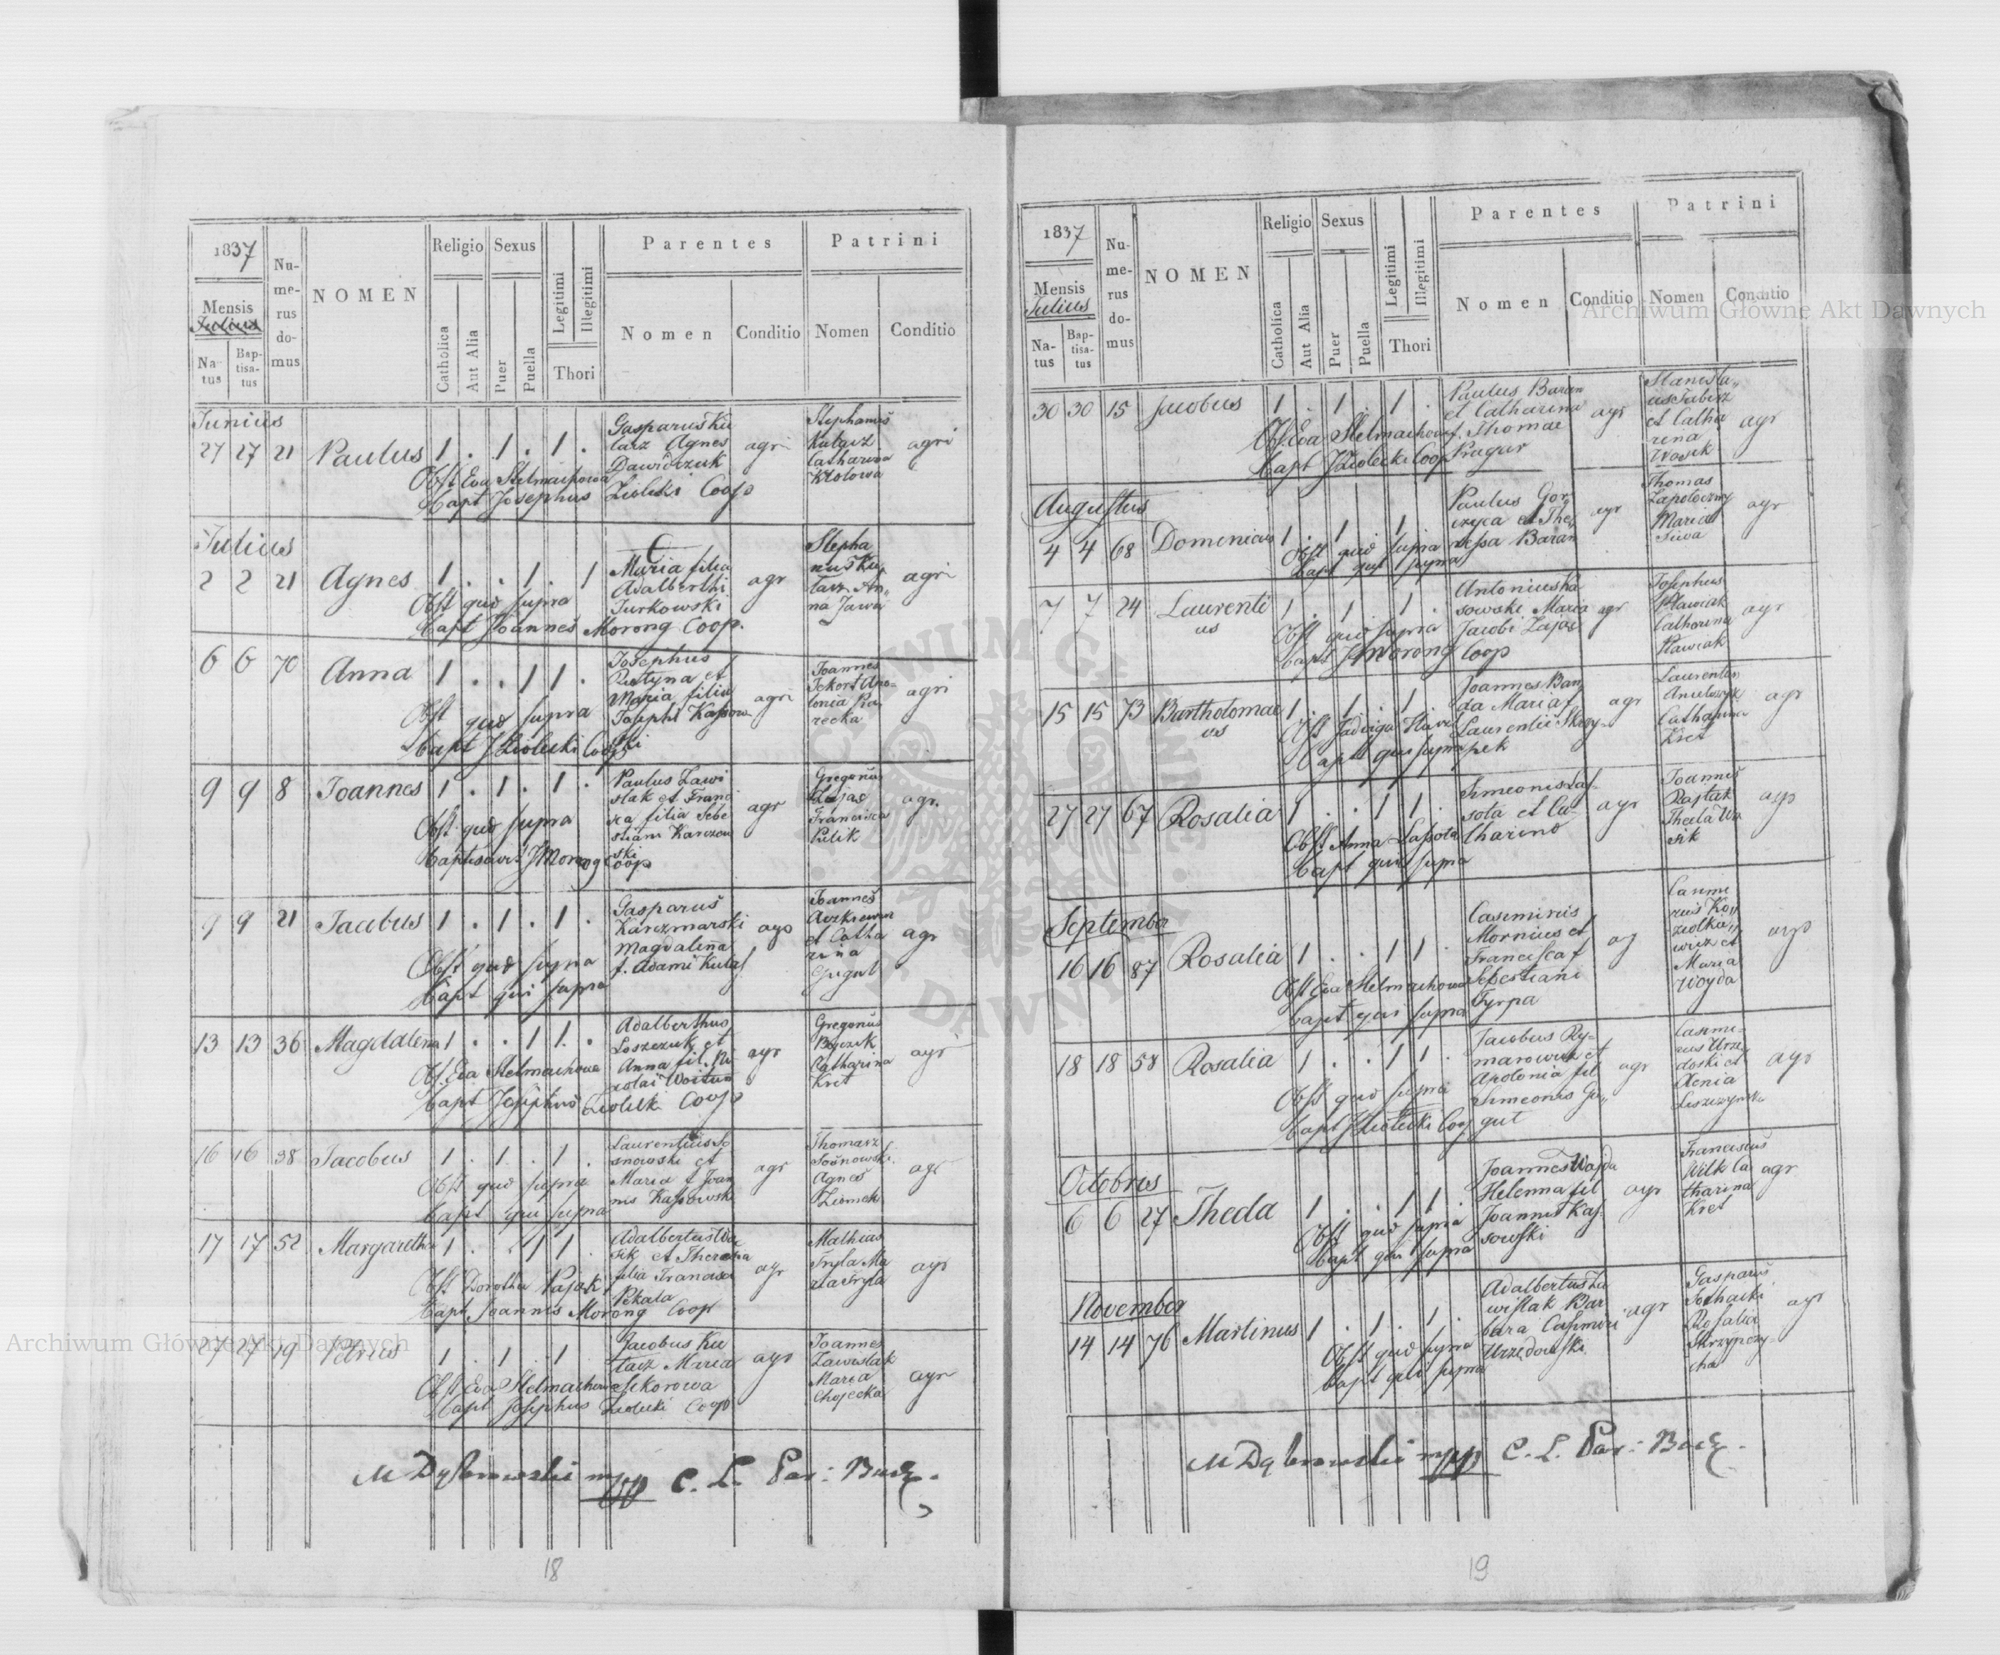 1837
Mensis
Julius
Natus
Baptisatus
Numerus domus
NOMEN
Religio
Catholica
Aut Alia
Sexus
Puer
Puella
Legitimi
Illegitimi
Thori
Parentes
Nomen
Conditio
Patrini
Nomen
Conditio
Junius
27 27 21 Paulus 1 . 1 . 1 .
Gasparus Ku
larz Agnes
Dawidczuk
agri
Stephanus
Catharina
Krolowa
agri
Obst Eva Stelmachowa
Bapt Josephus Ziolecki Coop
Julius
2 2 21 Agnes 1 . . 1 . 1
Maria filia
Adalberthi
Turkowski
agr
Stepha
nus Ku
larz An
na Jawa
agri
Obst quæ supra
Bapt Joannes Morong Coop.
6 6 70 Anna 1 . . 1 1 .
Josephus
et
Maria filia
Josephi Kassow
ski
agri
Joannes
Apo
lonia
agri
Obst quæ supra
Bapt J Ziolecki Coop
9 9 8 Joannes 1 . 1 . 1 .
Paulus Zawi
slak et Franci
sca filia Sebe
stiani Karczow
ski
agr
Gregorius
Zajac
Francisca
Pulik
agr.
Obst quæ supra
Baptisavit J Morong Coop
9 9 21 Jacobus 1 . 1 . 1 .
Gasparus
Karczmarski
Magdalena
f. Adami Kulas
agr
Joannes
et Catha
rina
Gugal
agr
Obst quæ supra
Bapt qui supra
13 13 36 Magdalena 1 . . 1 1 .
Adalberthus
Loszczuk et
Anna fil. Ni
colai
agr
Gregorius
Catharina
Kret
agr
Obst Eva Stelmachowa
Bapt Josephus Ziolecki Coop
16 16 38 Jacobus 1 . 1 . 1 .
Laurentius So
snowski et
Maria f Joan
nis Kassowski
agr
Thomasz
Sosnowski
Agnes
Ziomek
agr
Obst quæ supra
Bapt qui supra
17 17 52 Margaretha 1 . . 1 1 .
Adalbertus Wa
sik et Theresia
filia Francisci
Pekala
agr
Mathias
Tryla Ma
ria Tryla
agr
Obst Dorothea Pajak
Bapt Joannis Morong Coop
27 27 19 Petrus 1 . 1 . 1 .
Jacobus Ku
larz Maria
Sikorowa
agr
Joannes
Zawislak
Maria
Chojecka
agr
Obst Eva Stelmachowa
Bapt Josephus Ziolecki Coop
M Dąbrowski mpp C. L. Par: Bucz.
18
1837
Mensis
Julius
Natus
Baptisatus
Numerus domus
NOMEN
Religio
Catholica
Aut Alia
Sexus
Puer
Puella
Legitimi
Illegitimi
Thori
Parentes
Nomen
Conditio
Patrini
Nomen
Conditio
30 30 15 Jacobus 1 . 1 . 1 .
Paulus Baran
et Catharina
f. Thomae
Prugar
agr
Stanisla
us
et Catha
rina
Wasik
agr
Obst Eva Stelmachowa
Bapt J Ziolecki Coop
Augustus
4 4 68 Domenicus 1 . 1 . 1 .
Paulus Gor
czyca et The
resa Baran
agr
Thomas
Zapoloczny
Maria
Siwa
agr
Obst quæ supra
Bapt qui supra
7 7 24 Laurenti
us 1 . 1 . 1 .
Antonius Ka
sowski Maria
Jacobi Zajac
agr
Josephus
Slawiak
Catharina
Slawiak
agr
Obst quæ supra
Bapt J Morong Coop
15 15 73 Bartholomae
us 1 . 1 . 1 .
Joannes Ban
da Maria f
Laurentii
agr
Laurentius
Catharina
Kret
agr
Obst Jadviga
Bapt qui supra
27 27 67 Rosalia 1 . . 1 1 .
Simeonis Las
sota et Ca
tharina
agr
Joannes
Rajtak
Thecla Wa
sik
agr
Obst Anna Lassota
Bapt qui supra
September
16 16 87 Rosalia 1 . . 1 1 .
Casimirus
Mornius et
Francisca f
Sebestiani
Tyrpa
ag
Casimi
rus Ko
ziolkie
wicz et
Maria
Woyda
agr
Obst Eva Stelmachowa
Bapt qui supra
18 18 58 Rosalia 1 . . 1 1 .
Jacobus Ry
marowicz et
Apolonia fil
Simeonis Gu
gul
agr
Casimi
rus Urze
doski et
Xenia
Leszczynska
agr
Obst quæ supra
Bapt J Ziolecki Coop
Octobris
6 6 27 Thecla 1 . . 1 1 .
Joannes Wajda
Helenna fil
Joannis Kas
sowski
agr
Franciscus
Wilk Ca
tharina
Kret
agr
Obst quæ supra
Bapt qui supra
November
14 14 76 Martinus 1 . 1 . 1 .
Adalbertus Za
wislak Bar
bara Casimiri
Urzędowski
agr
Gasparus
Rosalia
Skrzypczy
cha
agr
Obst quæ supra
Bapt qui supra
M Dąbrowski mpp C. L. Par: Bucz.
19
Archiwum Główne Akt Dawnych
Archiwum Główne Akt Dawnych
ARCHIWUM GŁÓWNE AKT DAWNYCH